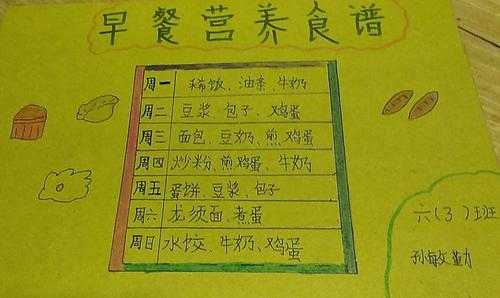 早餐营养食谱
周一 稀饭、油条、牛奶
周二 豆浆 包子、鸡蛋
周三 面包、豆奶、煎鸡蛋
周四 炒粉、煎鸡蛋、牛奶
周五 蛋饼、豆浆、包子
周六 龙须面、煮蛋
周日 水饺、牛奶、鸡蛋
六(3)班
孙敏勤